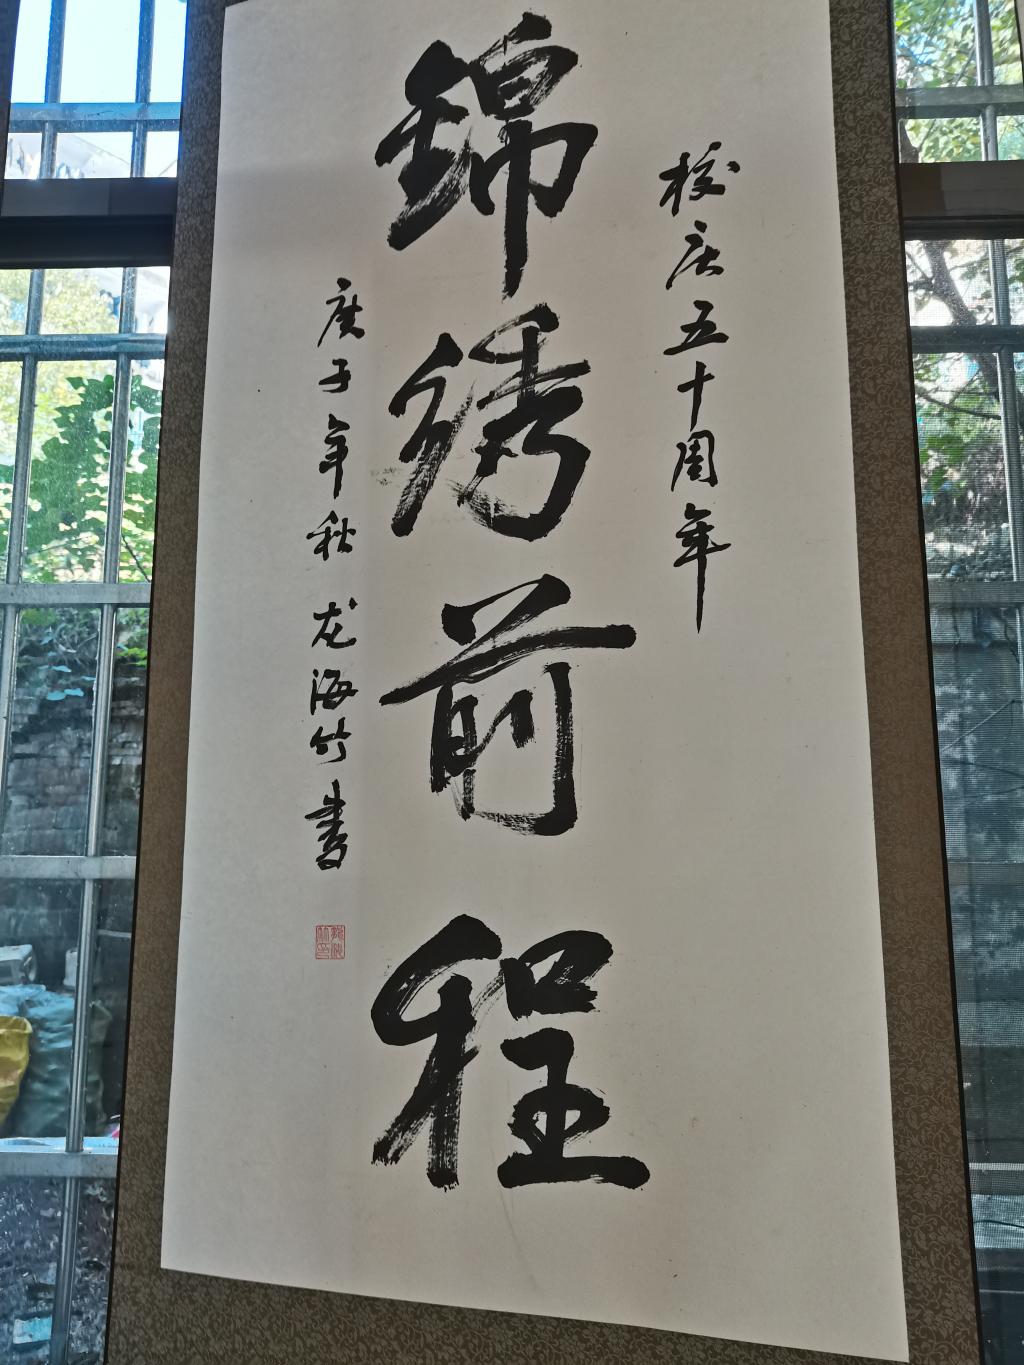 校庆五十周年
锦绣前程
庚子年秋 龙海竹书